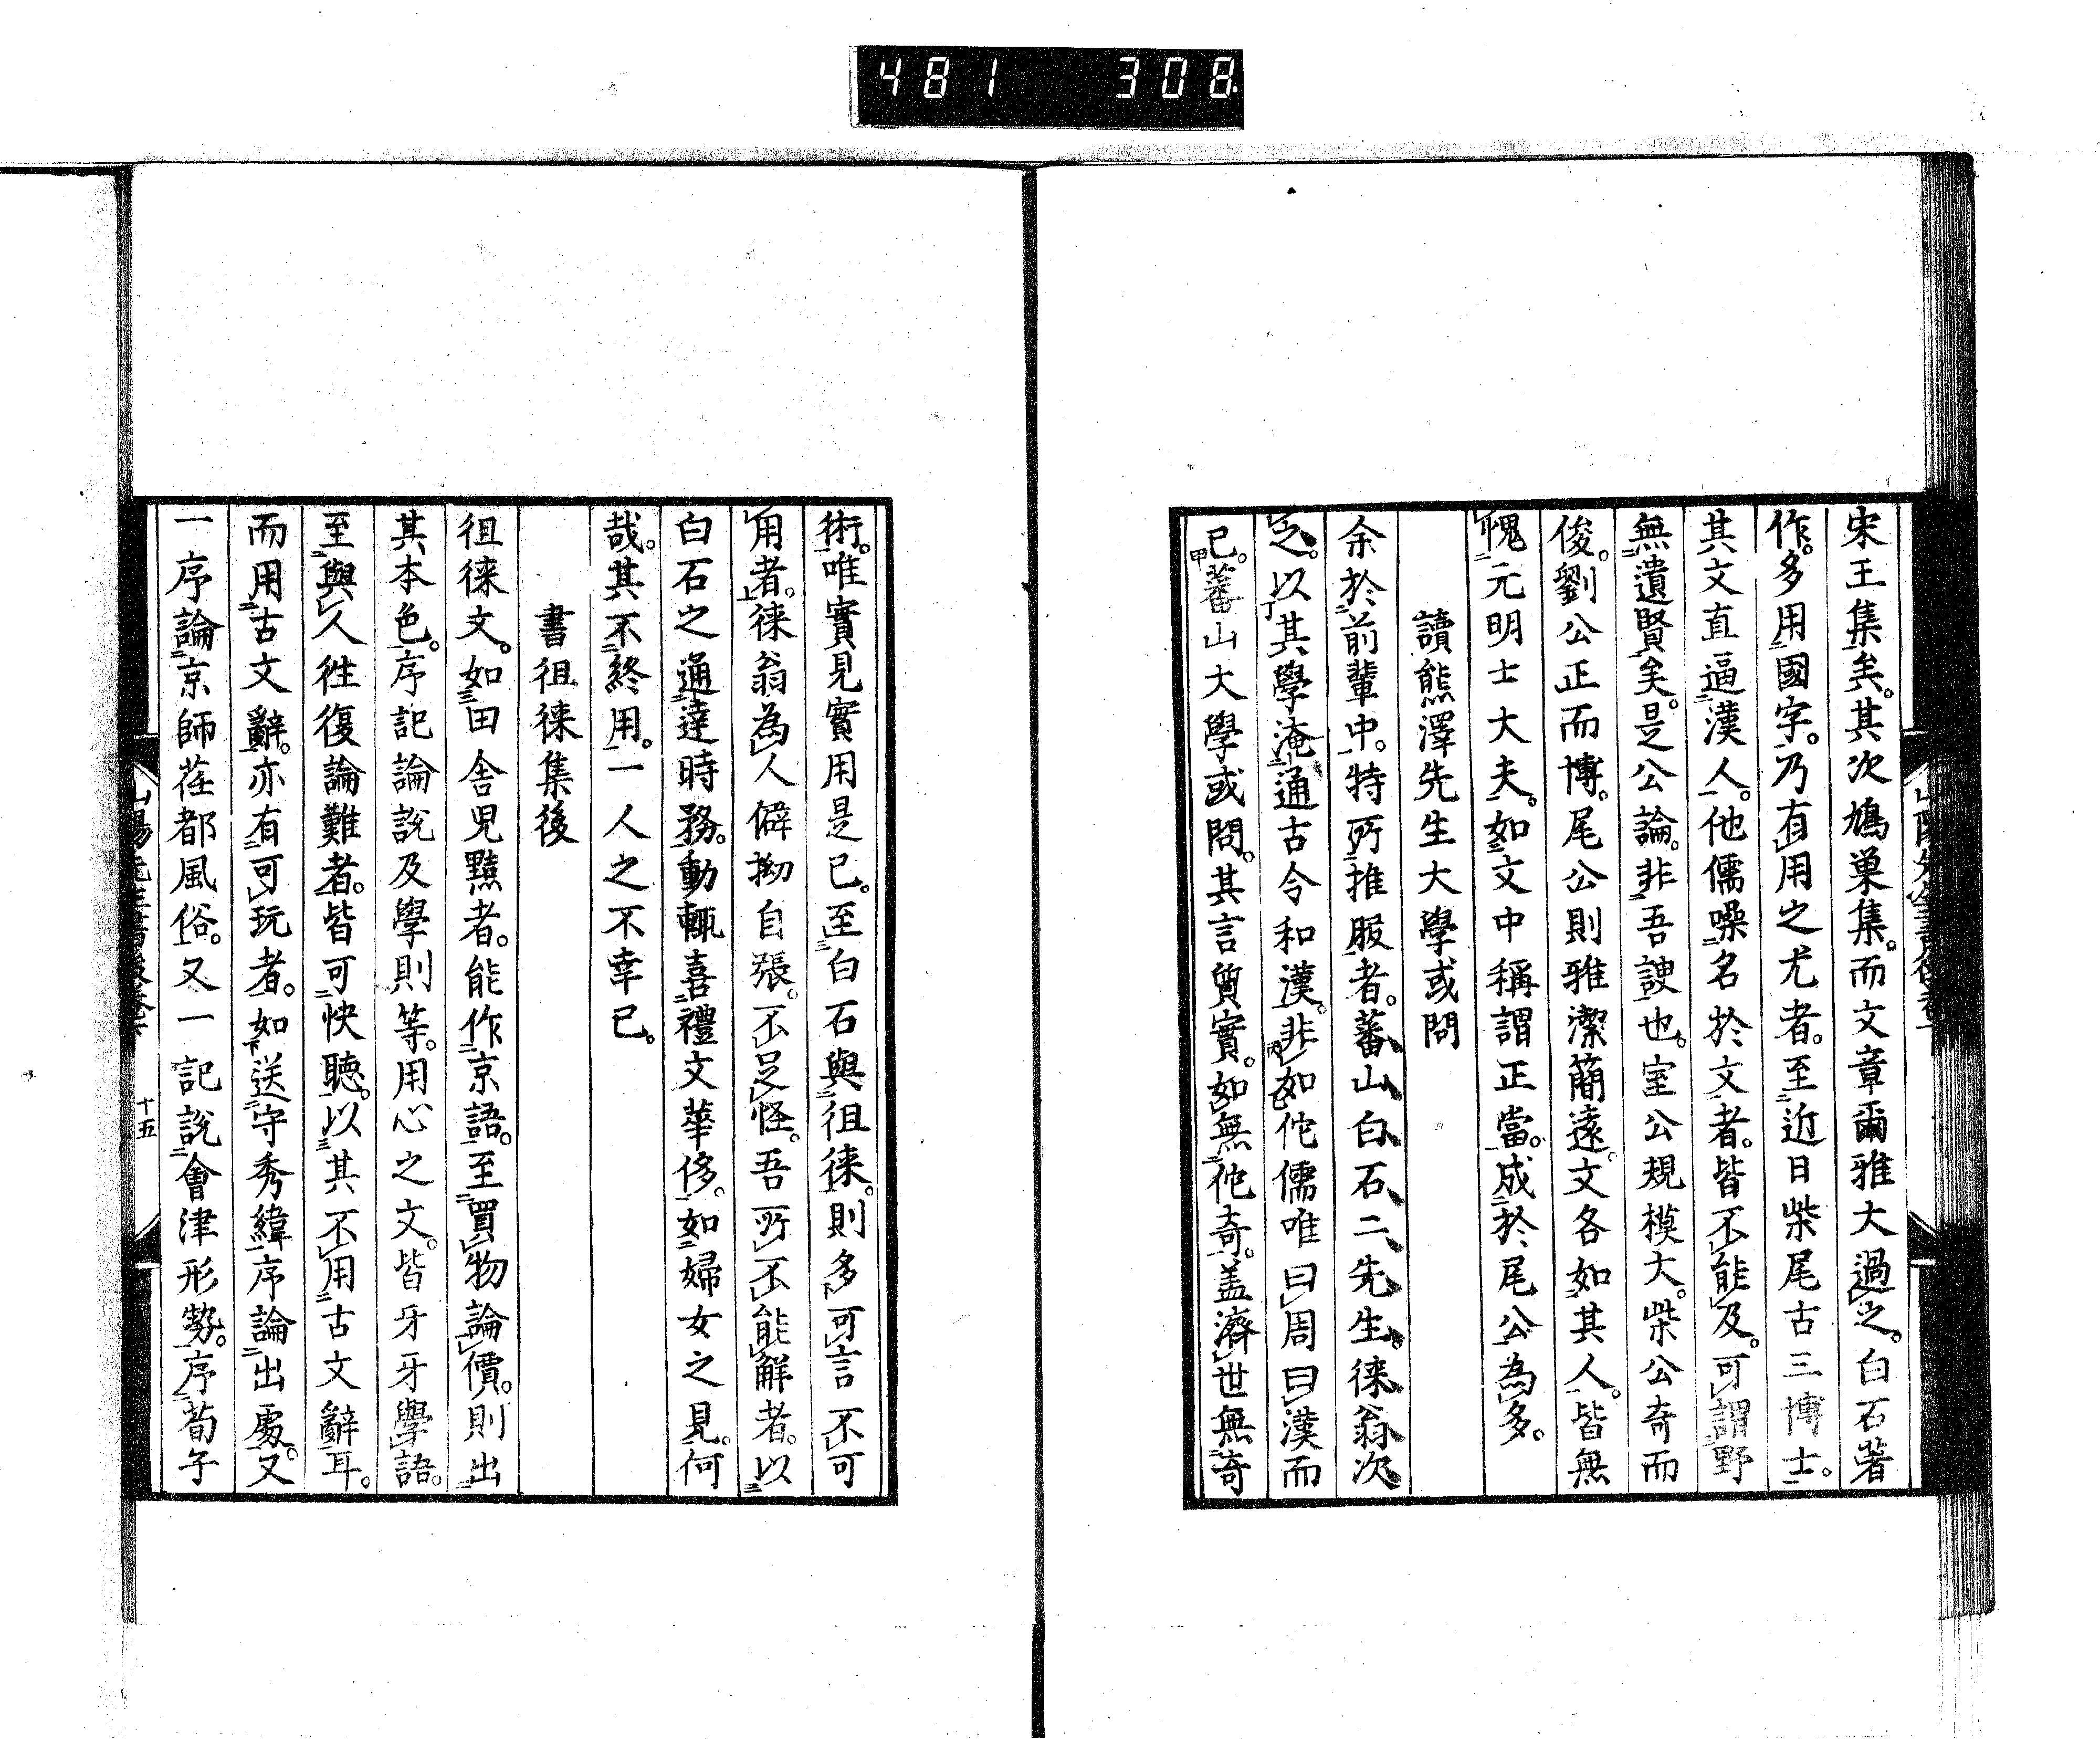 481 308
宋王集矣。其次鳩巢集。而文章爾雅大過之。白石著
作。多用國字。乃有用之尤者。至近日柴尾古三博士。
其文直逼漢人。他儒噪名於文者。皆不能及。可謂野
無遺賢矣。是公論。非吾諛也。室公規模大。柴公奇而
俊。劉公正而博。尾公則雅潔簡遠。文各如其人。皆無
愧元明士大夫。如文中稱謂正當。成於尾公為多。
讀熊澤先生大學或問
余於前輩中。特所推服者。蕃山白石二先生。徠翁次
之。以其學淹通古今和漢。非如他儒唯曰周曰漢而
已。蕃山大學或問。其言質實。如無他奇。盖濟世無奇
術。唯實見實用是已。至白石與徂徠。則多可言不可
用者。徠翁為人僻拗自張。不足怪。吾所不能解者。以
白石之通達時務。動輒喜禮文華侈。如婦女之見。何
哉。其不終用。一人之不幸已。
書徂徠集後
徂徠文。如田舍兒黠者。能作京語。至買物論價。則出
其本色。序記論說及學則等。用心之文。皆牙牙學語。
至與人徃復論難者。皆可快聽。以其不用古文辭耳。
而用古文辭。亦有可玩者。如送守秀緯序論出處。又
一序論京師荏都風俗。又一記說會津形勢。序荀子
十五